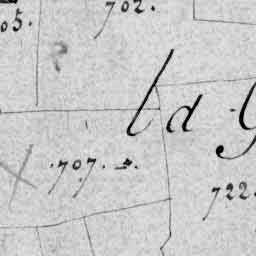 05.
702.
ld
.707.
722.